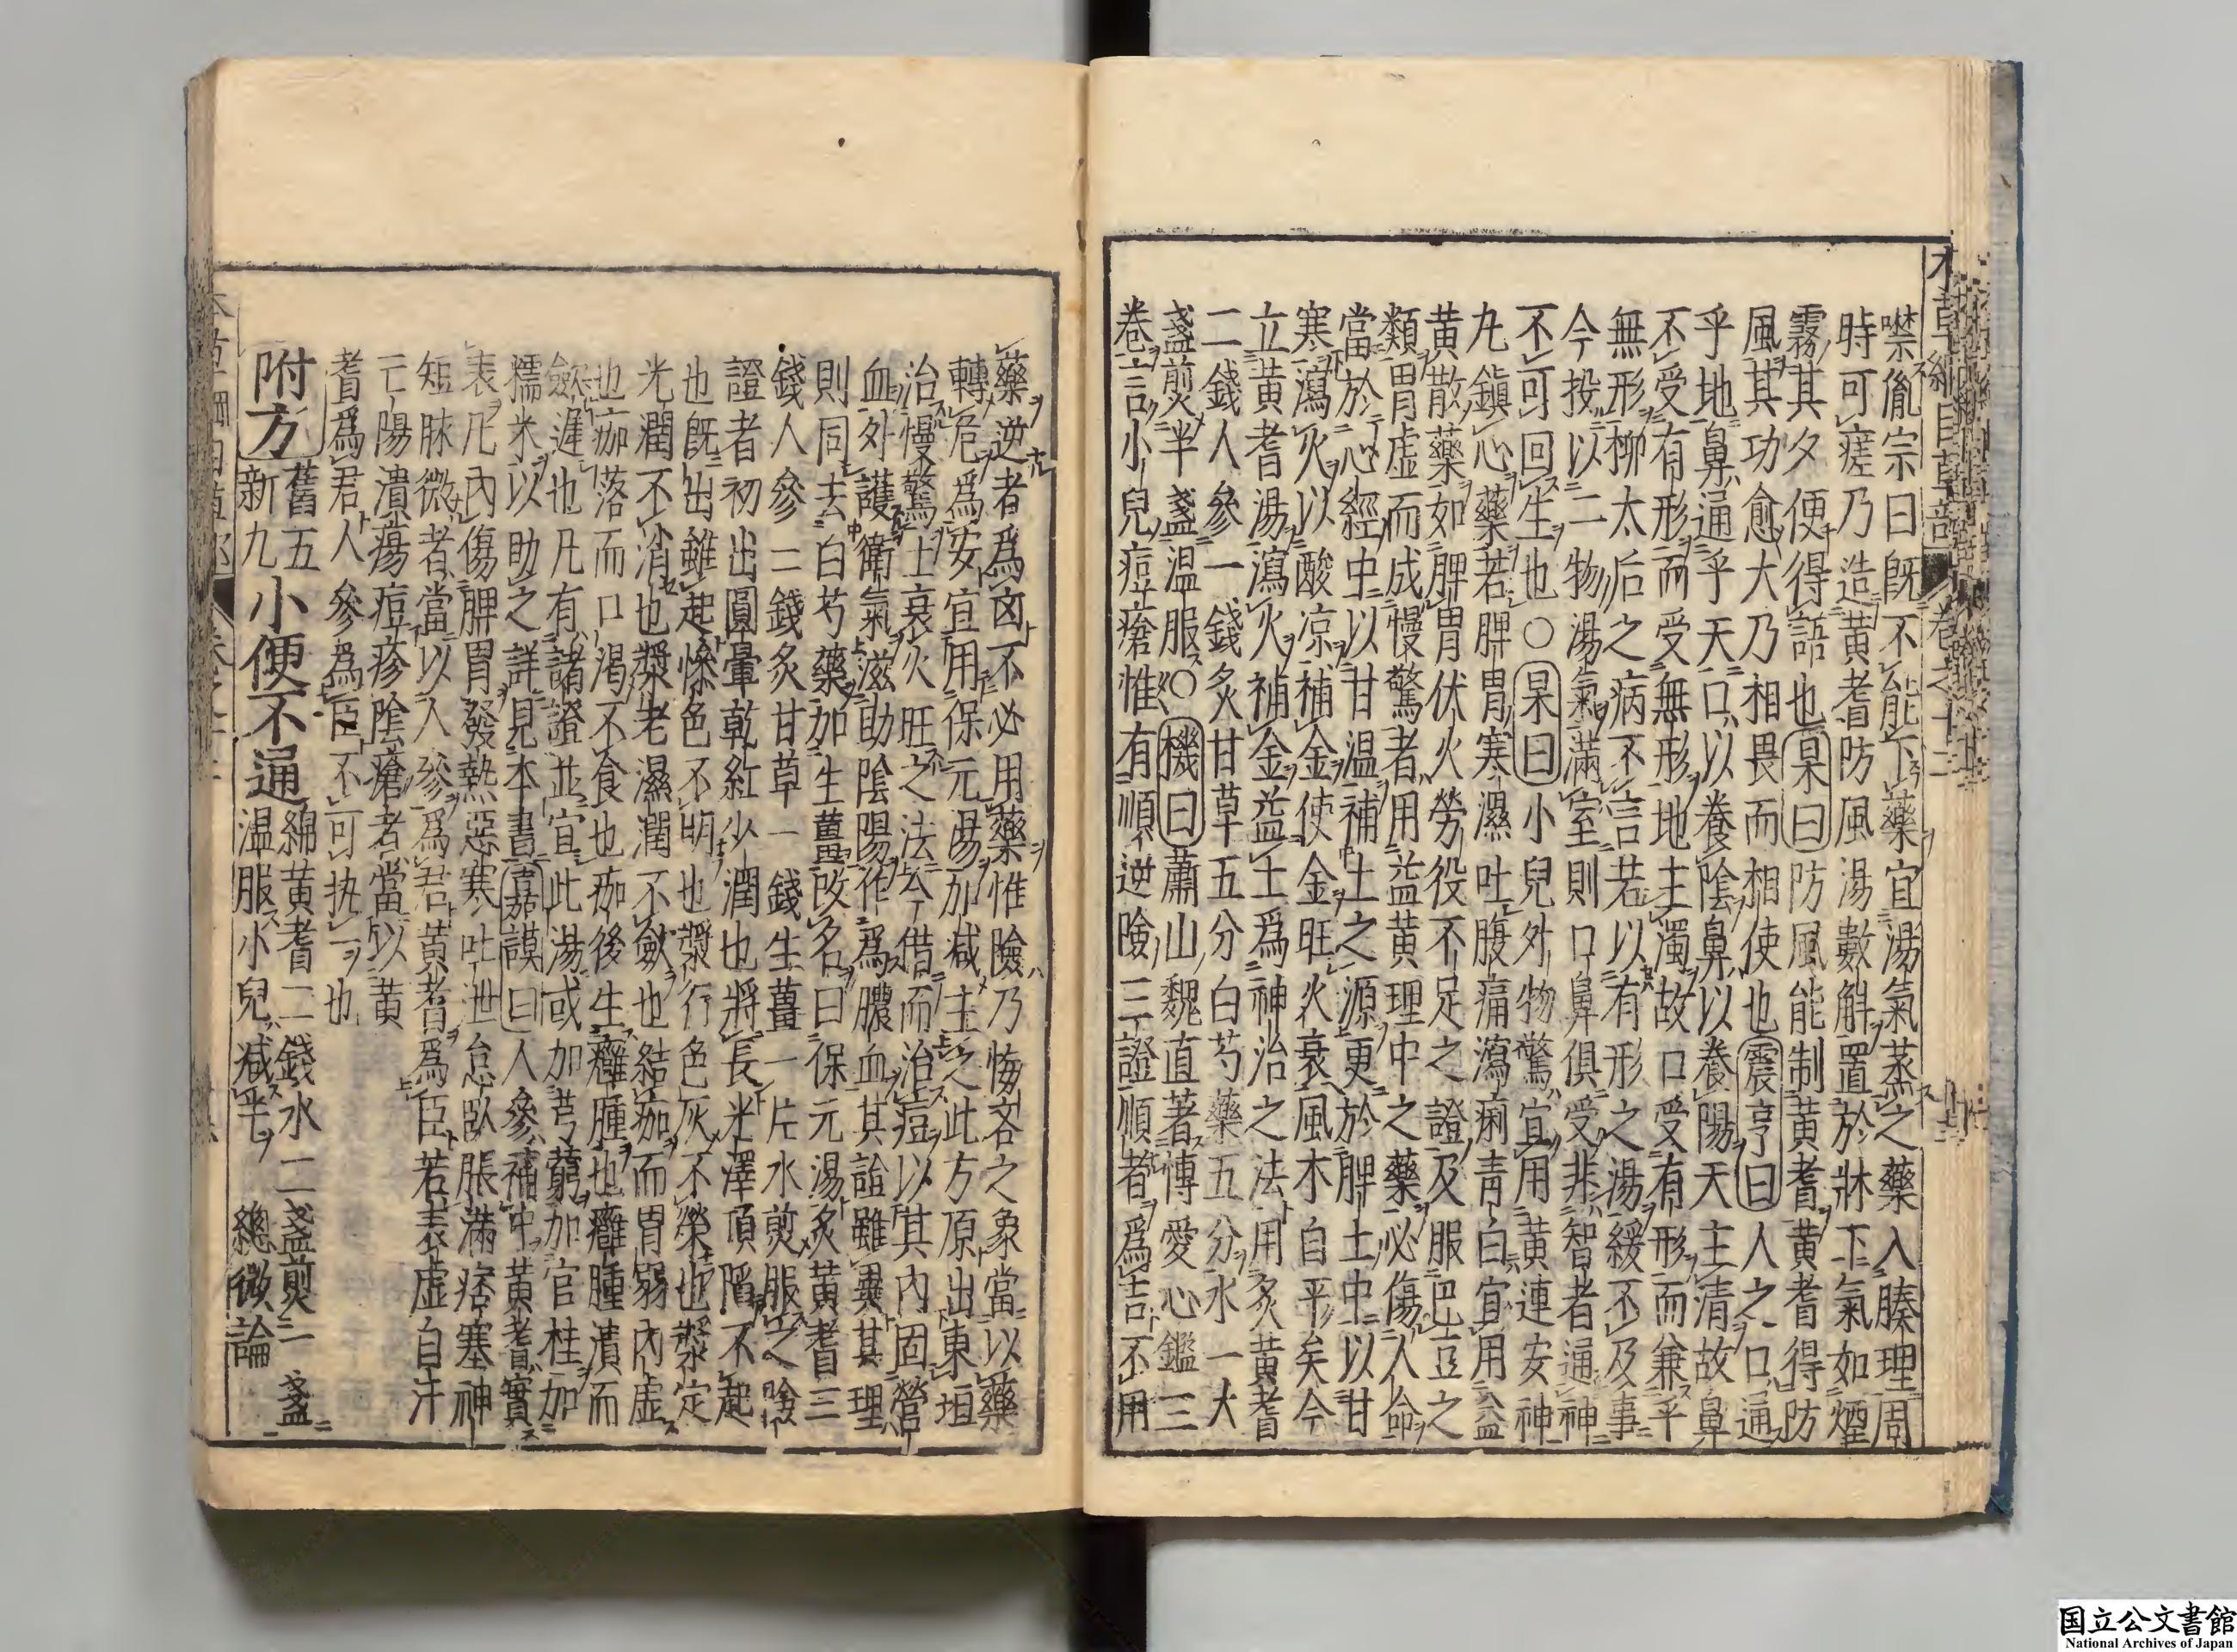 本草綱目草部 卷之十二
噤胤宗曰既不能下藥宜湯氣蒸之藥入腠理周
時可瘥乃造黄耆防風湯數斛置於牀下氣如煙
霧其夕便得語也杲曰防風能制黄耆黄耆得防
風其功愈大乃相畏而相使也震亨曰人之口通
乎地鼻通乎天口以養陰鼻以養陽天主清故鼻
不受有形而受無形地主濁故口受有形而兼乎
無形柳太后之病不言若以有形之湯緩不及事
今投以二物湯氣滿室則口鼻俱受非智者通神
不可回生也○杲曰小兒外物驚宜用黄連安神
丸鎮心藥若脾胃寒濕吐腹痛瀉痢青白宜用益
黄散藥如脾胃伏火勞役不足之證及服巴豆之
類胃虛而成慢驚者用益黄理中之藥必傷人命
當於心經中以甘温補土之源更於脾土中以甘
寒瀉火以酸凉補金使金旺火衰風木自平矣今
立黄耆湯瀉火補金益土爲神治之法用炙黄耆
二錢人參一錢炙甘草五分白芍藥五分水一大
盞煎半盞温服○機曰蕭山魏直著博愛心鑑三
卷言小兒痘瘡惟有順逆險三證順者爲吉不用
藥逆者爲凶不必用藥惟險乃悔吝之象當以藥
轉危爲安宜用保元湯加减主之此方原出東垣
治慢驚土衰火旺之法今借而治痘以其内固營
血外護衛氣滋助陰陽作爲膿血其證雖異其理
則同去白芍藥加生薑改名曰保元湯炙黄耆三
錢人參二錢炙甘草一錢生薑一片水煎服之險
證者初出圓暈乾紅少潤也將長光澤頂陷不起
也既出雖起慘色不明也漿行色灰不榮也漿定
光潤不消也漿老濕潤不斂也結痂而胃弱内虛
也痂落而口渴不食也痂後生癰腫也癰腫潰而
斂遲也凡有諸證並宜此湯或加芎藭加官桂加
糯米以助之詳見本書嘉謨曰人參補中黄耆實
表凡内傷脾胃發熱惡寒吐泄怠臥脹滿痞塞神
短脉微者當以人參爲君黄耆爲臣若表虛自汗
亡陽潰瘍痘疹陰瘡者當以黄
耆爲君人參爲臣不可执一也
附方舊五新九小便不通綿黄耆二錢水二盞煎一盞
温服小兒减半 總微論
国立公文書館
National Archives of Japan